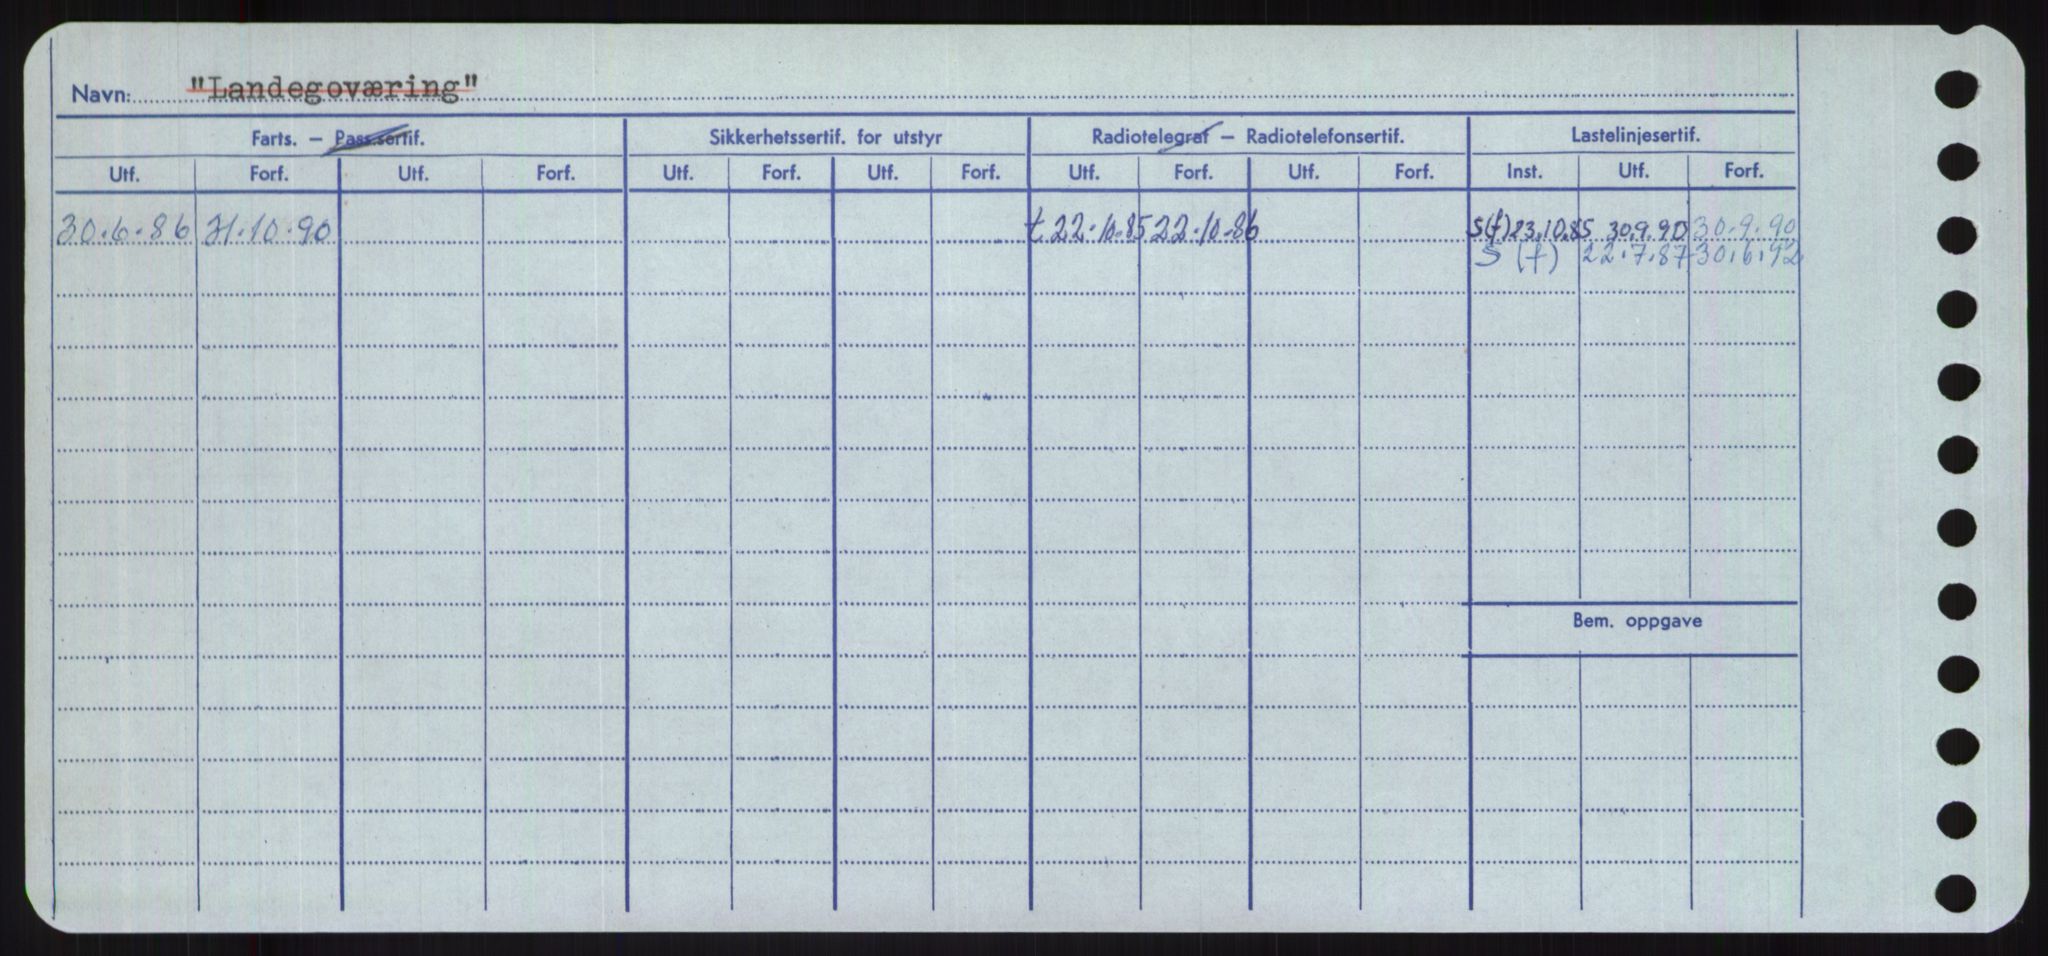 Navn: "Landegoværing"
Farts. — Pass.sertif. Sikkerhetssertif. for utstyr Radiotelegraf — Radiotelefonsertif. Lastelinjesertif.
Utf. Forf. Utf. Forf. Utf. Forf. Utf. Forf. Utf. Forf. Utf. Forf. Inst. Utf. Forf.
30.6.86 31.10.90 t 22.10.85 22.10.86 S(f) 23.10.85 30.9.90 30.9.90
S (f) 22.7.87 30.6.92
Bem. oppgave